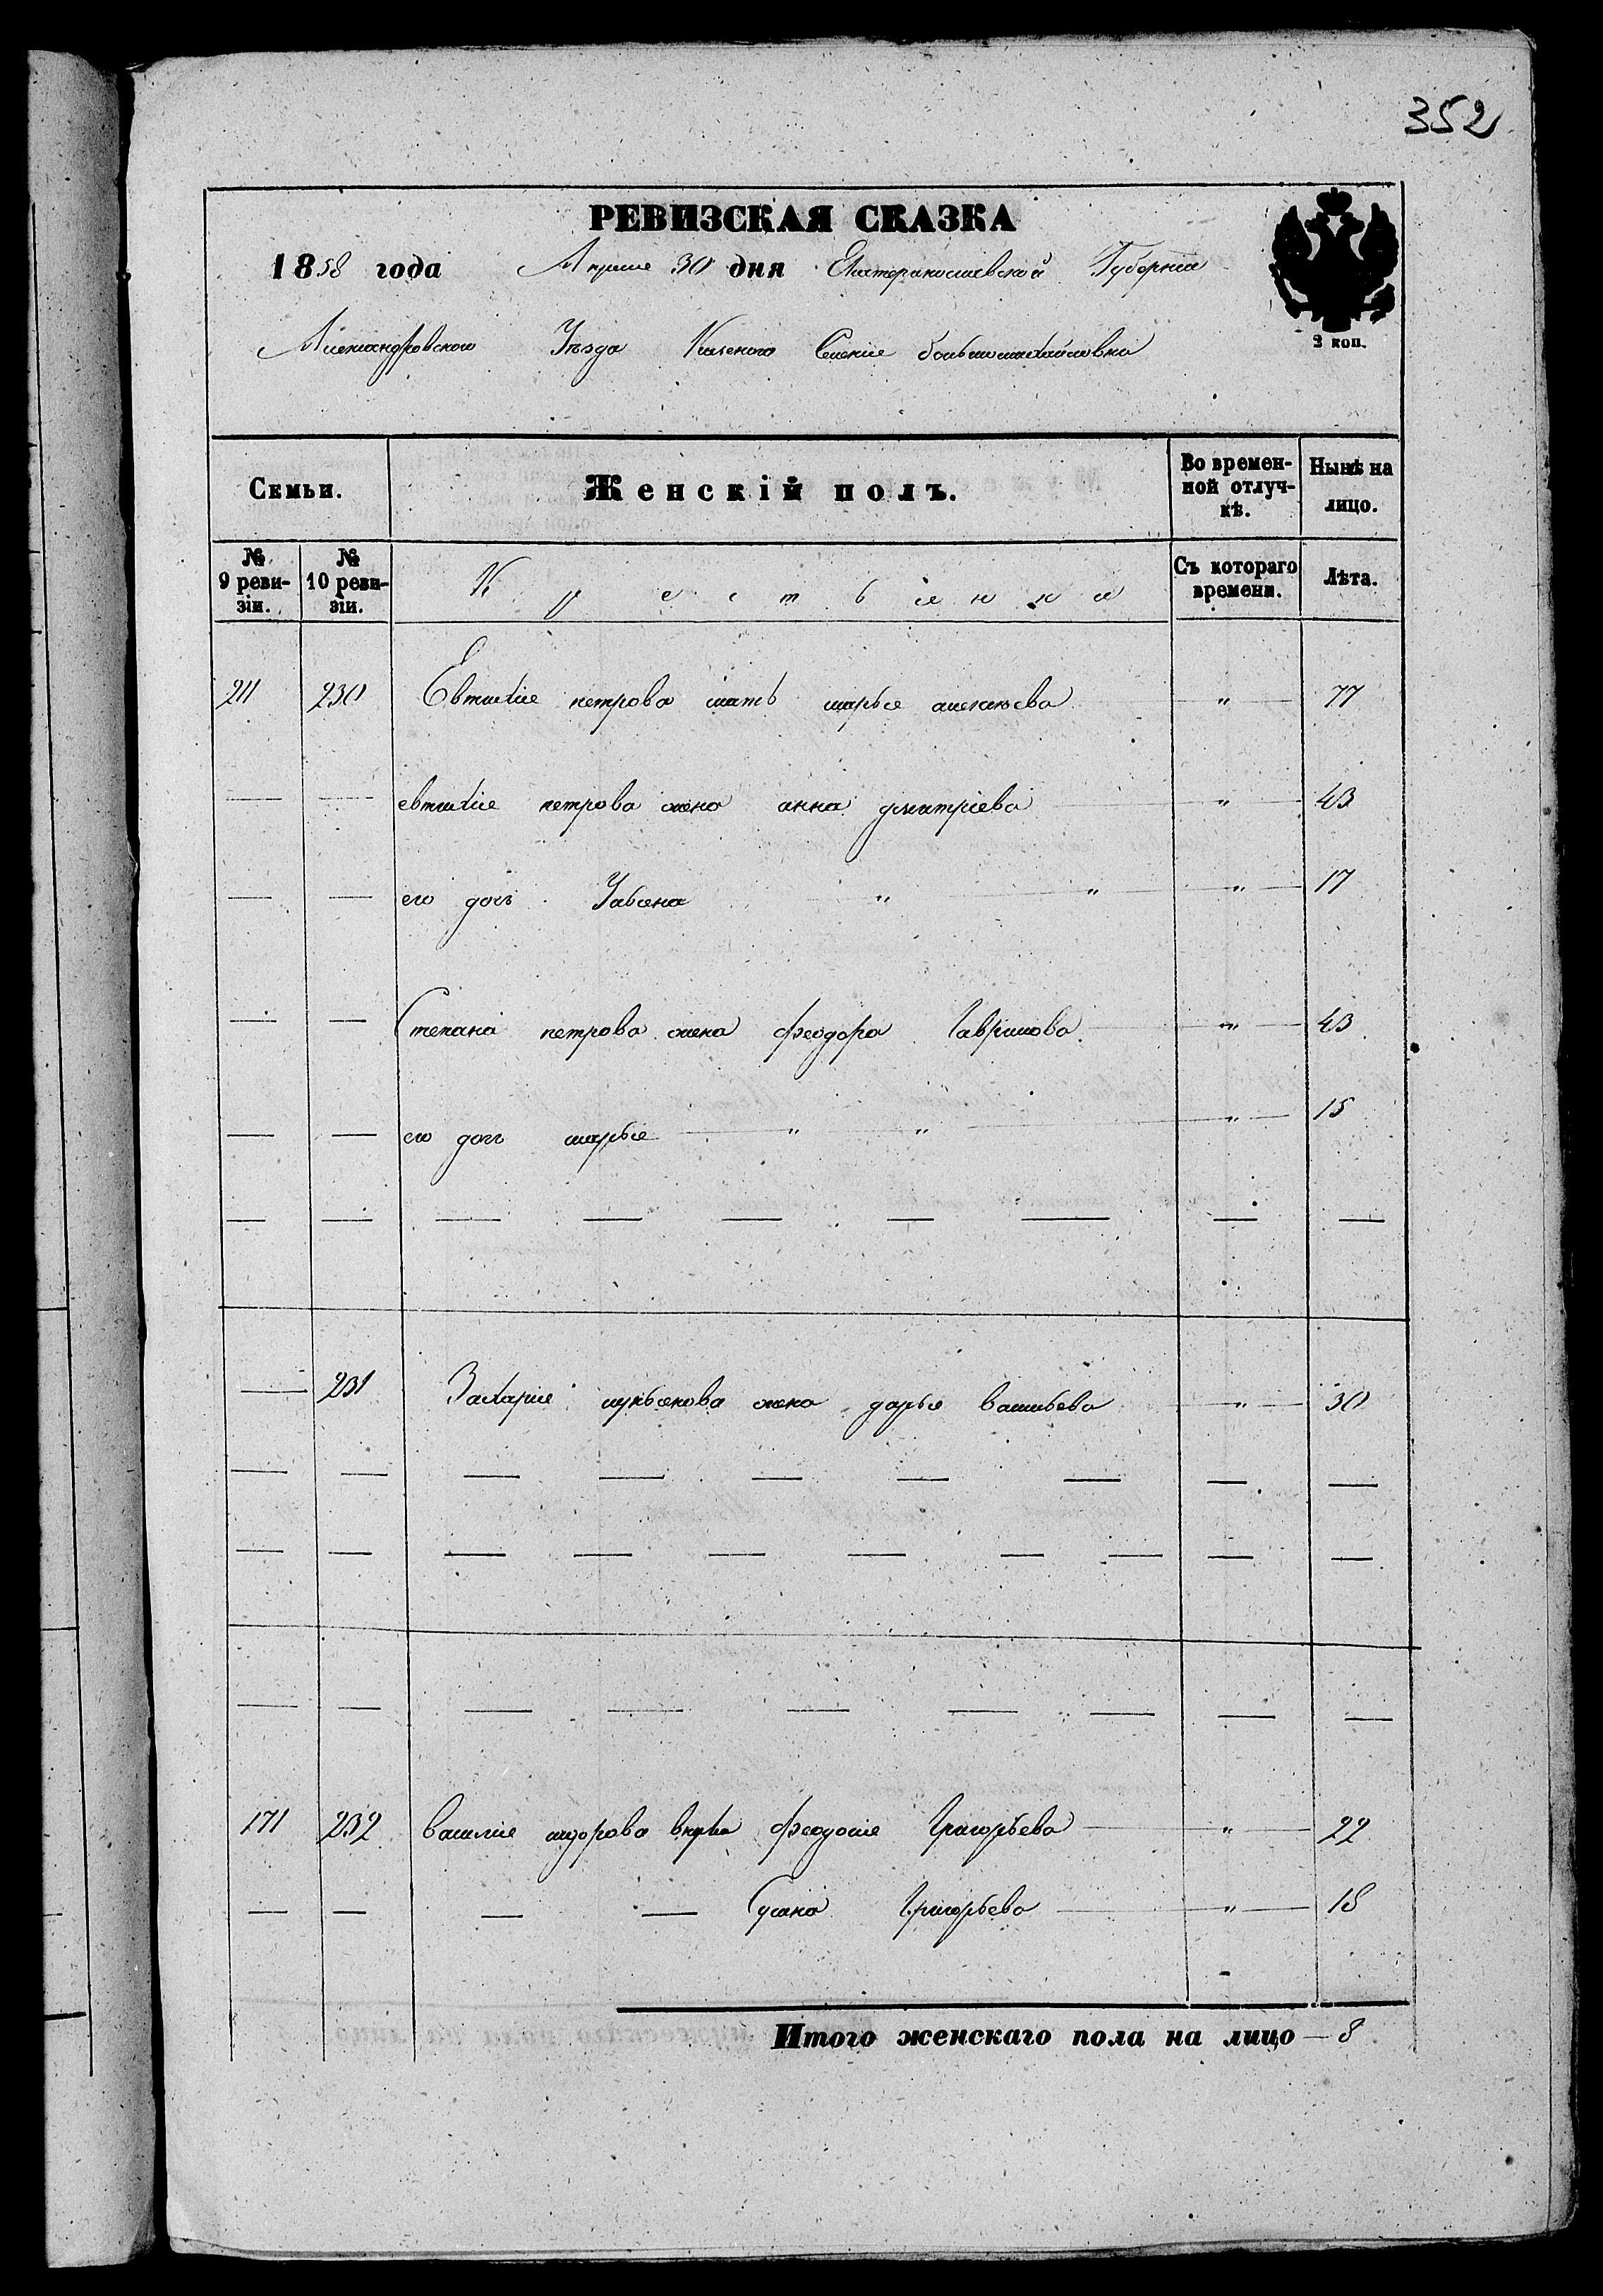 352
РЕВИЗСКАЯ СКАЗКА
1858 года Апреля 30 дня Екатеринославской Губернии
Александровского Уѣзда Казенного Селение большомихайловки
2 коп.
Семьи. Женскій полъ. Во временной отлучкѣ. Нынѣ на лицо.
№ 9 ревизіи. № 10 ревизіи. Крестьянки Съ котораго времени. Лѣта.
211 230 Евтихіе петрова мать марья алексѣева " 77
— — евтихіе петрова жена анна дмитріева " 43
— — его дочь " " " 17
— — Степана петрова жена феодора Гаврилова " 43
— — его дочь марья " " " 15
— 231 Захаріе лукьянова жена дарья васильева " 30
171 232 василіе внука феодосіе Григорьева " 22
— — — — Григорьева " 18
Итого женскаго пола на лицо — 8